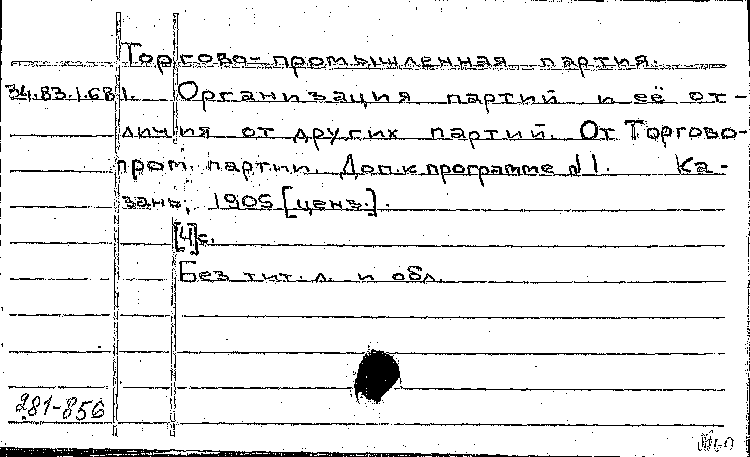 Торгово-промышленная партия.
34.83.1.681. Организация партий и её от-
личия от других партий. От Торгово-
пром. партии. Доп. к программе №1. Ка-
зань, 1905 [ценз.].
[4]с.
Без тит. л. и обл.
281-856